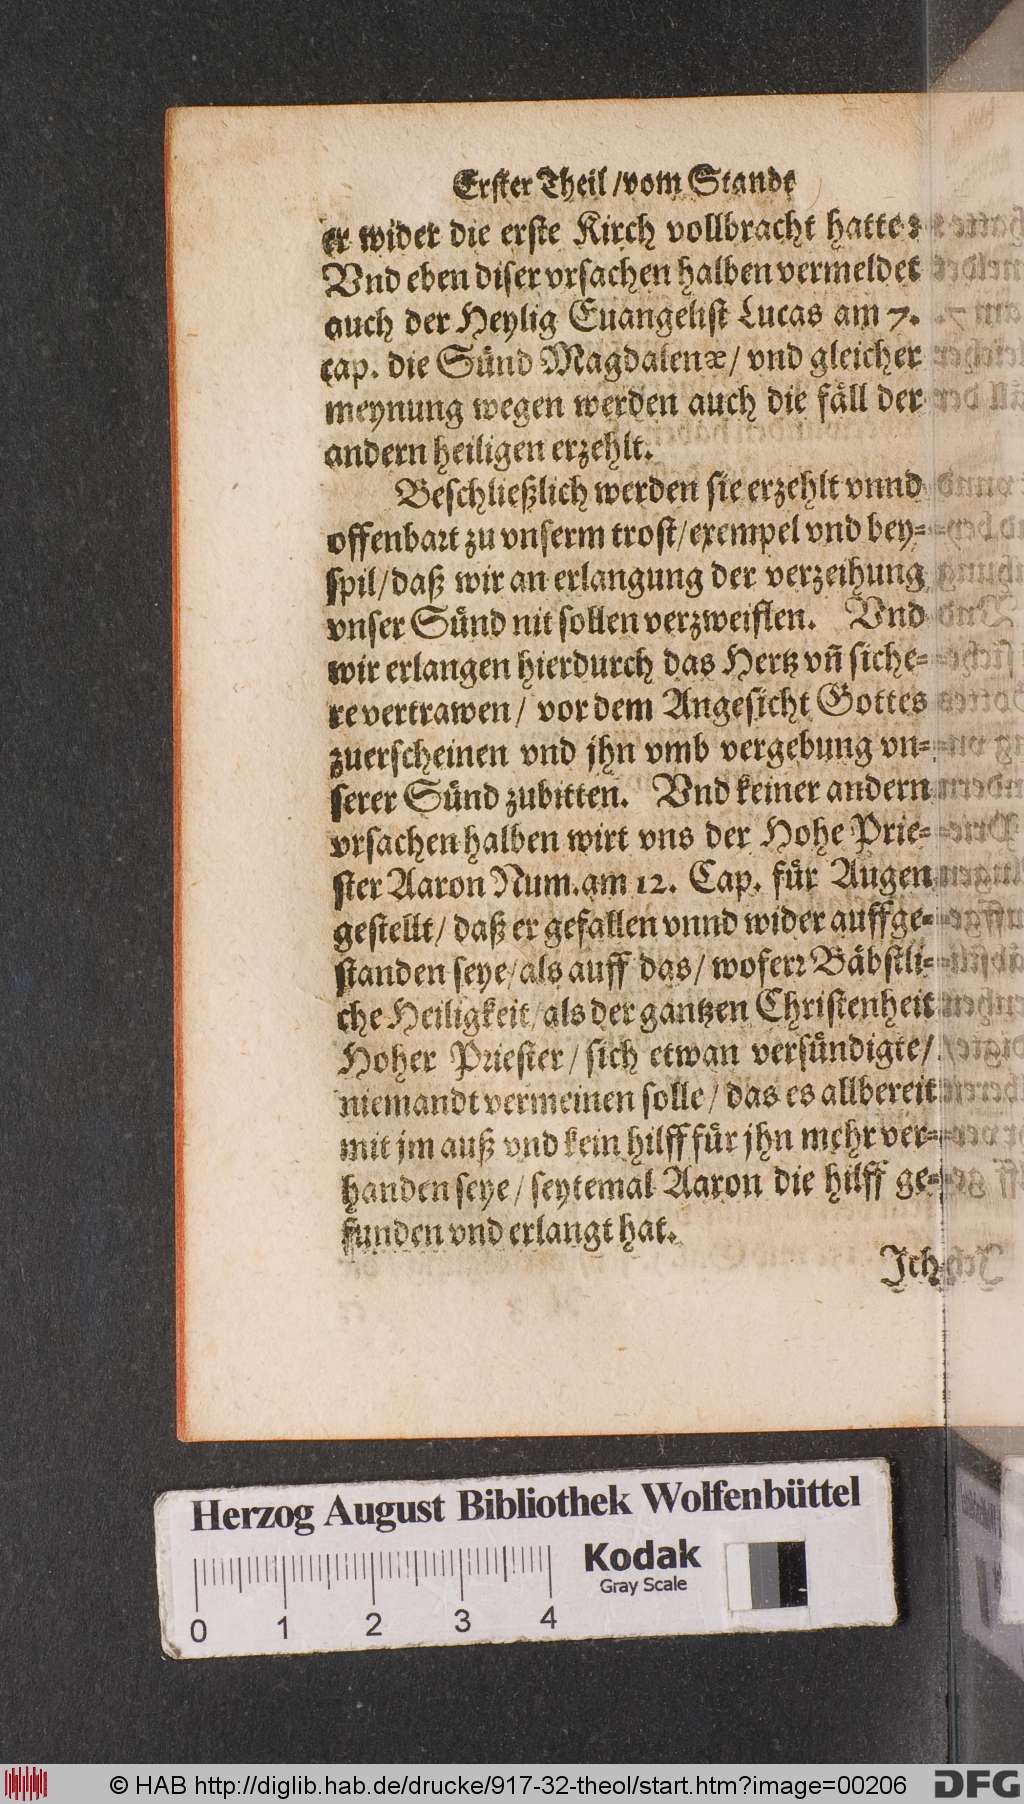 Erster Theil / vom Stande
er wider die erste Kirch vollbracht hatte:
Vnd eben diser vrsachen halben vermeldet
auch der Heylig Euangelist Lucas am 7.
cap. die Sünd Magdalenæ / vnd gleicher
meynung wegen werden auch die fäll der
andern heiligen erzehlt.
Beschließlich werden sie erzehlt vnnd
offenbart zu vnserm trost / exempel vnd bey-
spil / daß wir an erlangung der verzeihung
vnser Sünd nit sollen verzweiflen. Vnd
wir erlangen hierdurch das Hertz vn̄ siche-
re vertrawen / vor dem Angesicht Gottes
zuerscheinen vnd jhn vmb vergebung vn-
serer Sünd zubitten. Vnd keiner andern
vrsachen halben wirt vns der Hohe Prie-
ster Aaron Num. am 12. Cap. für Augen
gestellt / daß er gefallen vnnd wider auffge-
standen seye / als auff das / woferr Bäbstli-
che Heiligkeit / als der gantzen Christenheit
Hoher Priester / sich etwan versündigte /
niemandt vermeinen solle / das es allbereit
mit jm auß vnd kein hilff für jhn mehr ver-
handen seye / seytemal Aaron die hilff ge-
funden vnd erlangt hat.
Jch
Herzog August Bibliothek Wolfenbüttel
Kodak
Gray Scale
0 1 2 3 4
© HAB http://diglib.hab.de/drucke/917-32-theol/start.htm?image=00206
DFG